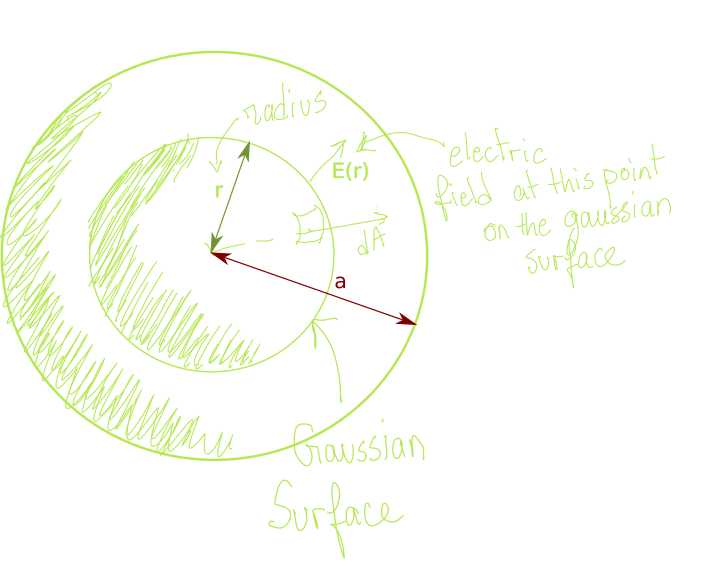 radius
r
E(r)
electric
field at this point
on the gaussian
surface
dA
a
Gaussian
Surface